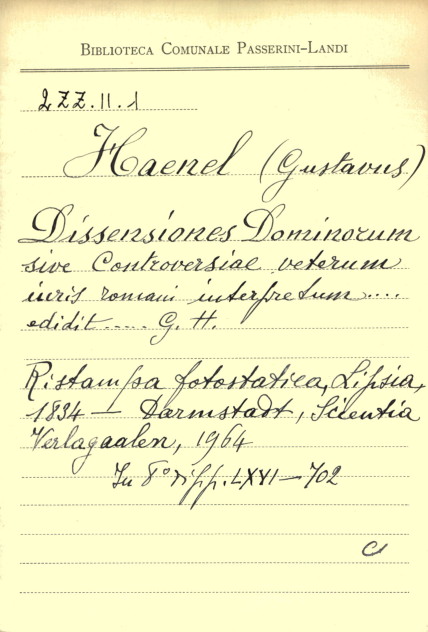 BIBLIOTECA COMUNALE PASSERINI-LANDI
2ZZ.II.1
Haenel (Gustavus)
Dissensiones Dominorum
sive Controversiae veterum
iuris romani interpretum....
edidit ..... G. H.
Ristampa fotostatica, Lipsia,
1834 - Darmstadt, Scientia
Verlagaalen, 1964
In 8° di pp. LXXI - 702